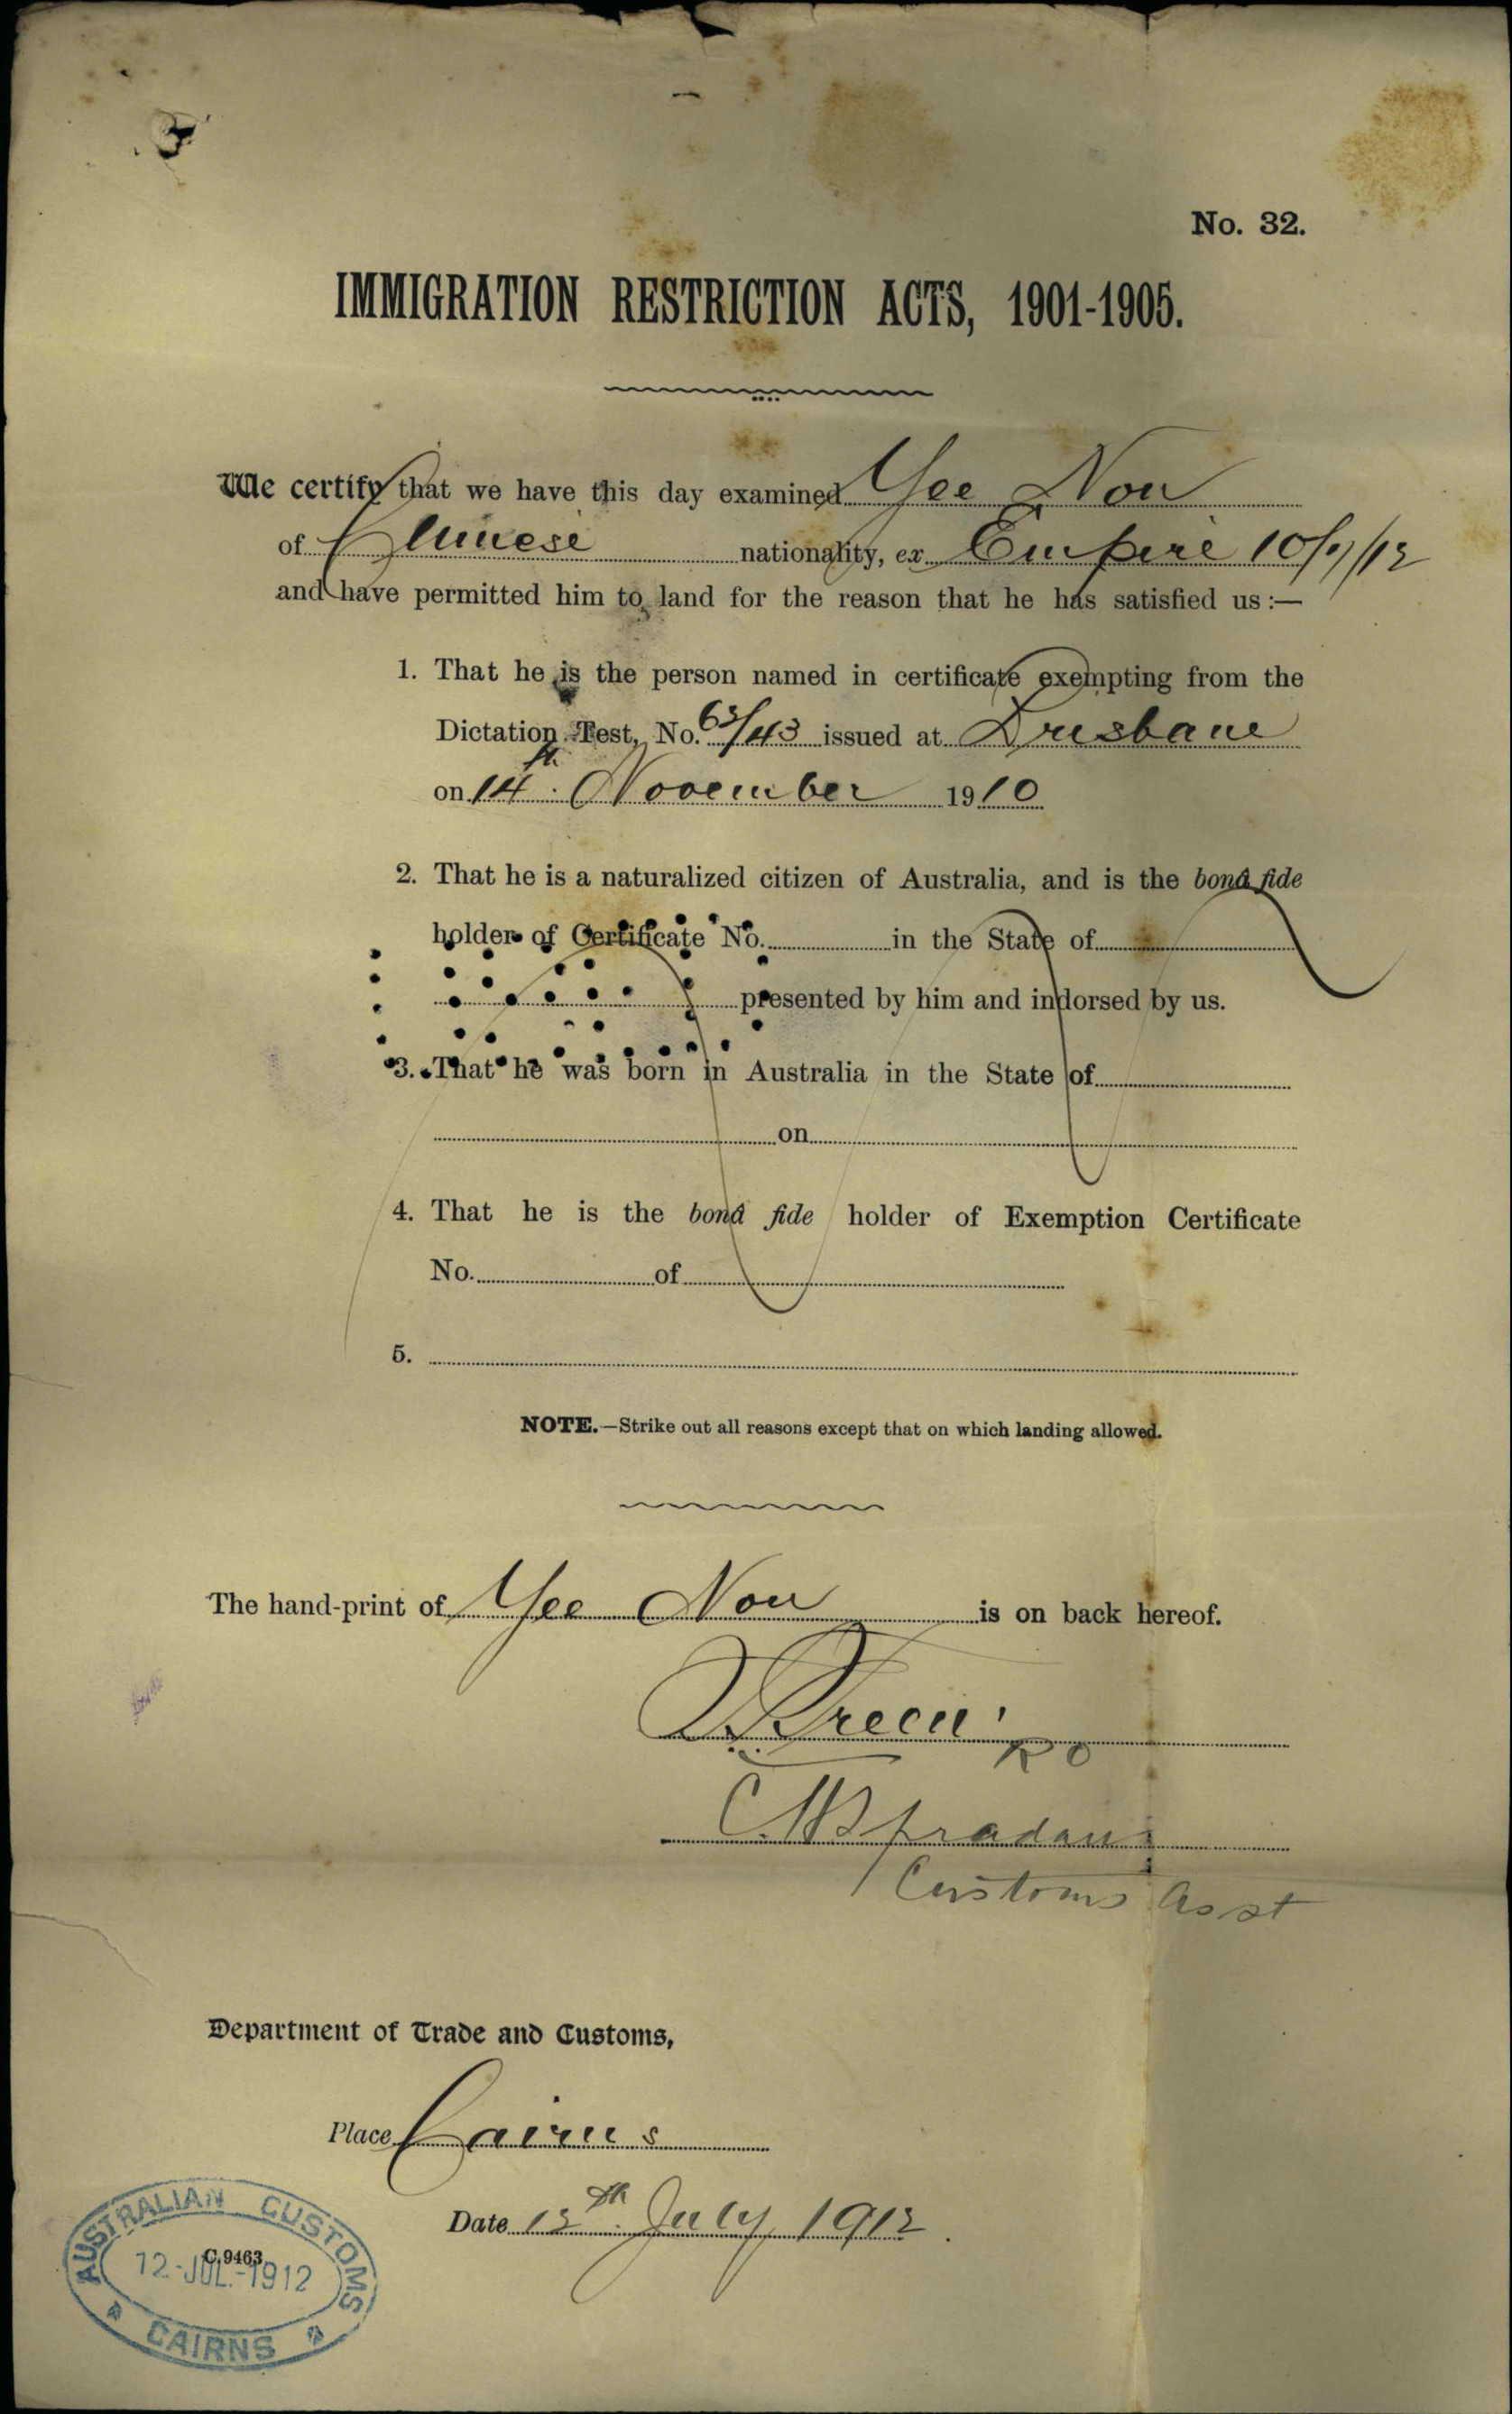 No. 32.
IMMIGRATION RESTRICTION ACTS, 1901-1905.
We certify that we have this day examined Yee Nou
of Chinese nationality, ex Empire 10/7/12
and have permitted him to land for the reason that he has satisfied us :—
1. That he is the person named in certificate exempting from the
Dictation Test, No. 63/43 issued at Brisbane
on 14th November 1910
2. That he is a naturalized citizen of Australia, and is the bonâ fide
holder of Certificate No. in the State of
presented by him and indorsed by us.
3. That he was born in Australia in the State of
on
4. That he is the bonâ fide holder of Exemption Certificate
No. of
5.
NOTE.—Strike out all reasons except that on which landing allowed.
The hand-print of Yee Nou is on back hereof.
Customs Asst
Department of Trade and Customs,
Place Cairns
Date 12th July 1912
AUSTRALIAN CUSTOMS
C.9463
12-JUL.-1912
CAIRNS